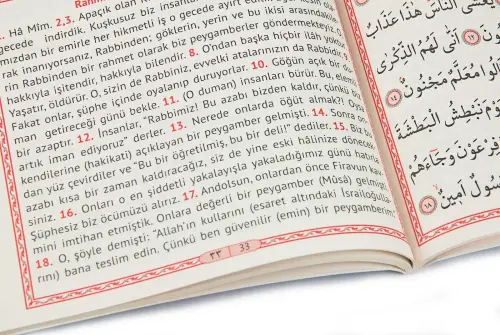 Hâ Mîm. 2,3. Apaçık olan
gecede indirdik. Kuşkusuz biz insanla
mızdan bir emirle her hikmetli iş o gecede ayırt edilir
rak inanıyorsanız, Rabbinden; göklerin, yerin ve bu ikisi arasındakile
rin Rabbinden bir rahmet olarak biz peygamberler göndermekteyiz. O
hakkıyla işitendir, hakkıyla bilendir. 8. O'ndan başka hiçbir ilâh yoktur
Yaşatır, öldürür. O, sizin de Rabbiniz, evvelki atalarınızın da Rabbidir. 9.
Fakat onlar, şüphe içinde oyalanıp duruyorlar. 10. Göğün açık bir
man getireceği günü bekle. 11. (O duman) insanları bürür. Bu, elem
bir azaptır. 12. İnsanlar, "Rabbimiz! Bu azabı bizden kaldır, çünkü biz
artık iman ediyoruz" derler. 13. Nerede onlarda öğüt almak?! Oysa
kendilerine (hakikati) açıklayan bir peygamber gelmişti. 14. Sonra on
dan yüz çevirdiler ve "Bu bir öğretilmiş, bu bir deli!" dediler. 15. Biz bu
azabı kısa bir zaman kaldıracağız, siz de yine eski hâlinize dönecek
siniz. 16. Onları o en şiddetli yakalayışla yakaladığımız günü hatırla
Şüphesiz biz öcümüzü alırız. 17. Andolsun, onlardan önce Firavun kav
mini imtihan etmiştik. Onlara değerli bir peygamber (Mûsâ) gelmişti
18. O, şöyle demişti: "Allah'ın kullarını (esaret altındaki İsrailoğulla
rını) bana teslim edin. Çünkü ben güvenilir (emin) bir peygamberim."
٣٣ 33
يَغْشَى النَّاسَ هٰذَا عَذَابٌ
أَنّٰى لَهُمُ الذِّكْرٰى
قَالُوا مُعَلَّمٌ مَجْنُونٌ ١٤
يَوْمَ نَبْطِشُ الْبَطْشَةَ
فِرْعَوْنَ وَجَاءَهُمْ
رَسُولٌ أَمِينٌ ١٨